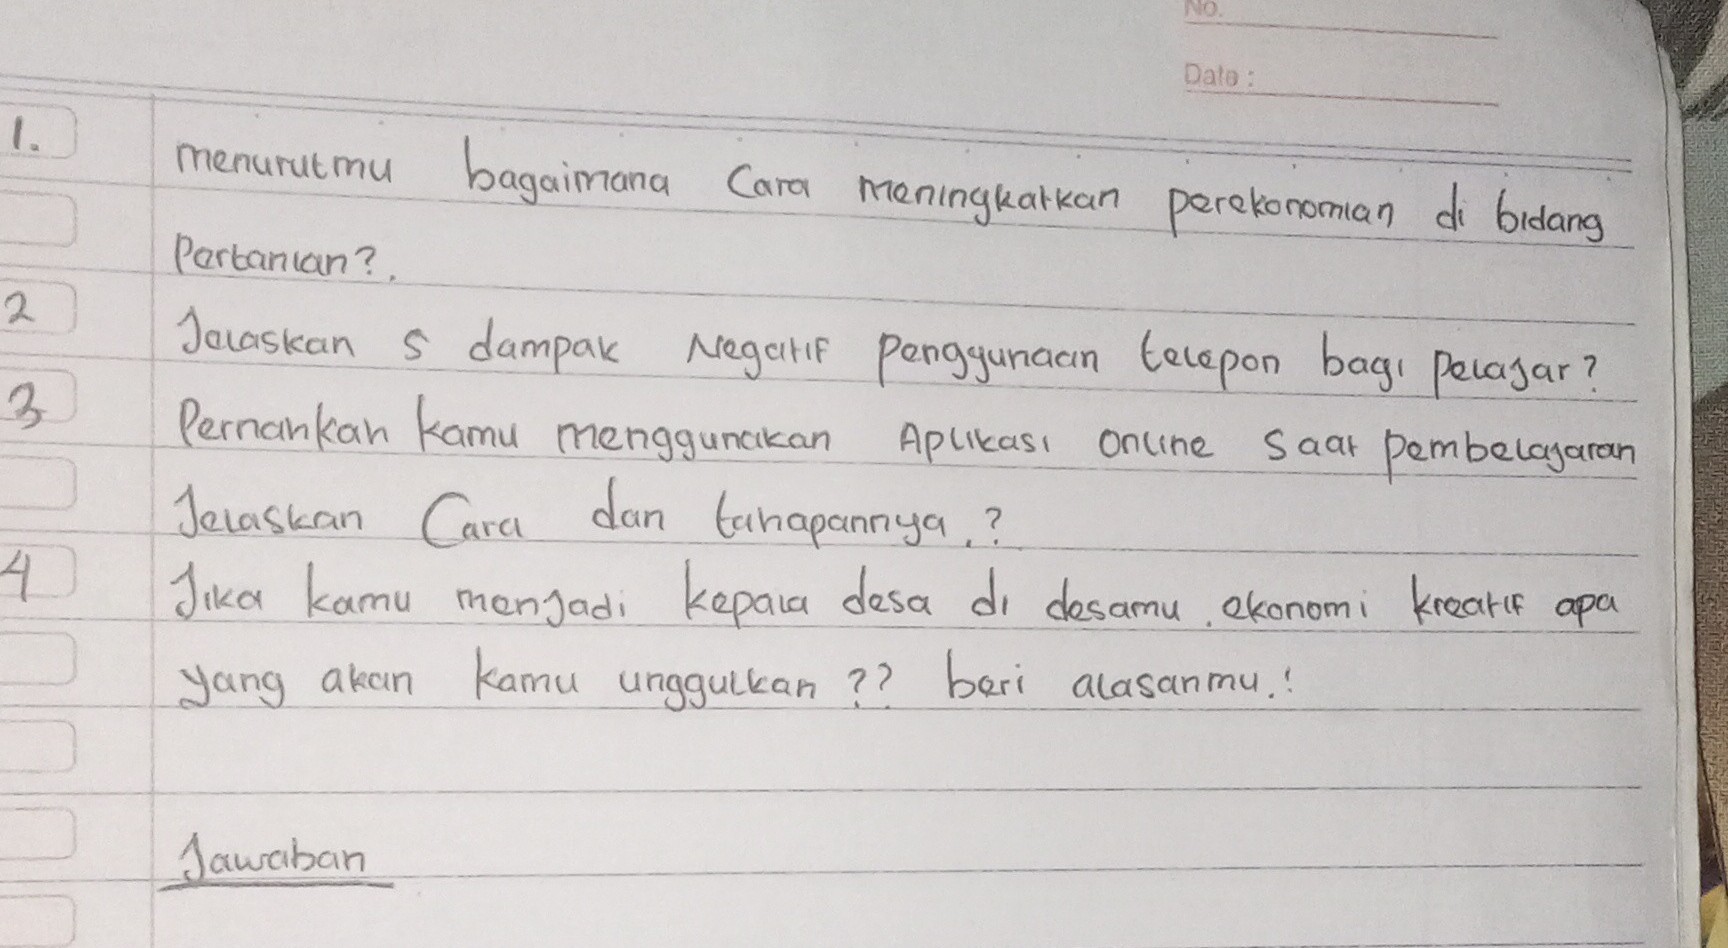 No.
Date :
1. menurutmu bagaimana Cara meningkatkan perekonomian di bidang
Pertanian?.
2 Jelaskan 5 dampak Negatif Penggunaan telepon bagi Pelajar?
3 Pernahkah kamu menggunakan Aplikasi online saat pembelajaran
Jelaskan Cara dan tahapannya.?
4 Jika kamu menjadi kepala desa di desamu, ekonomi kreatif apa
yang akan kamu unggulkan ?? beri alasanmu.!
Jawaban